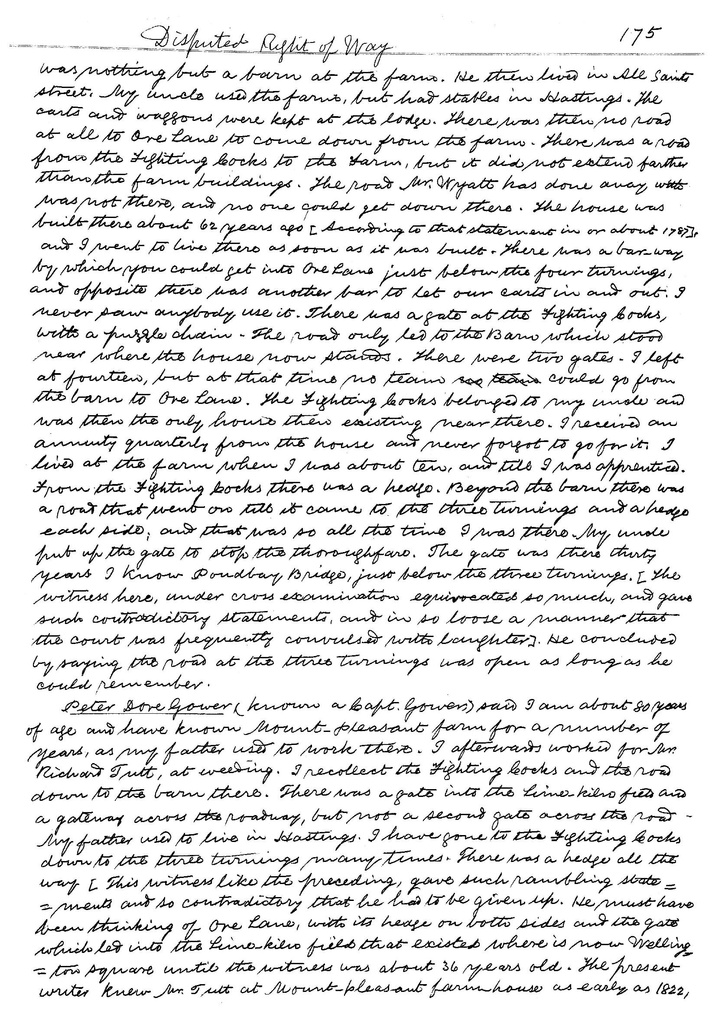 Disputed Right of Way 175
was nothing but a barn at the farm. He then lived in All Saints
street. My uncle used the farm, but had stables in Hastings. The
carts and waggons were kept at the lodge. There was then no road
at all to Ore Lane to come down from the farm. There was a road
from the Fighting Cocks to the Farm, but it did not extend farther
than the farm buildings. The road Mr. Wyatt has done away with
was not there, and no one could get down there. The house was
built there about 62 years ago [According to that statement in or about 1787],
and I went to live there as soon as it was built. There was a bar-way
by which you could get into Ore Lane just below the four turnings,
and opposite there was another bar to let our carts in and out. I
never saw anybody use it. There was a gate at the Fighting Cocks,
with a puzzle chain - The road only led to the Barn which stood
near where the house now stands. There were two gates - I left
at fourteen, but at that time no team could go from
the barn to Ore Lane. The Fighting Cocks belonged to my uncle and
was then the only house then existing near there. I received an
annuity quarterly from the house and never forgot to go for it. I
lived at the farm when I was about ten, and till I was apprenticed.
From the Fighting Cocks there was a hedge. Beyond the barn there was
a road that went on till it came to the three turnings and a hedge
each side; and that was so all the time I was there. My uncle
put up the gate to stop the thoroughfare. The gate was there thirty
years I know Poundbay Bridge, just below the three turnings. [The
witness here, under cross examination equivocated so much, and gave
such contradictory statements, and in so loose a manner that
the court was frequently convulsed with laughter]. He concluded
by saying the road at the three turnings was open as long as he
could remember.
Peter Dore Gower, (known a Capt. Gower,) said I am about 80 years
of age and have known Mount-pleasant farm for a number of
years, as my father used to work there. I afterwards worked for Mr.
Richard Tutt, at weeding. I recollect the Fighting Cocks and the road
down to the barn there. There was a gate into the Lime-kiln field and
a gateway across the roadway, but not a second gate across the road -
My father used to live in Hastings. I have gone to the Fighting Cocks
down to the three turnings many times. There was a hedge all the
way [This witness like the preceding, gave such rambling state=
=ments and so contradictory that he had to be given up. He must have
been thinking of Ore Lane, with its hedge on both sides and the gate
which led into the Lime-kiln field that existed where is now Welling=
=ton square until the witness was about 36 years old. The present
writer knew Mr. Tutt at Mount-pleasant farm house as early as 1822,